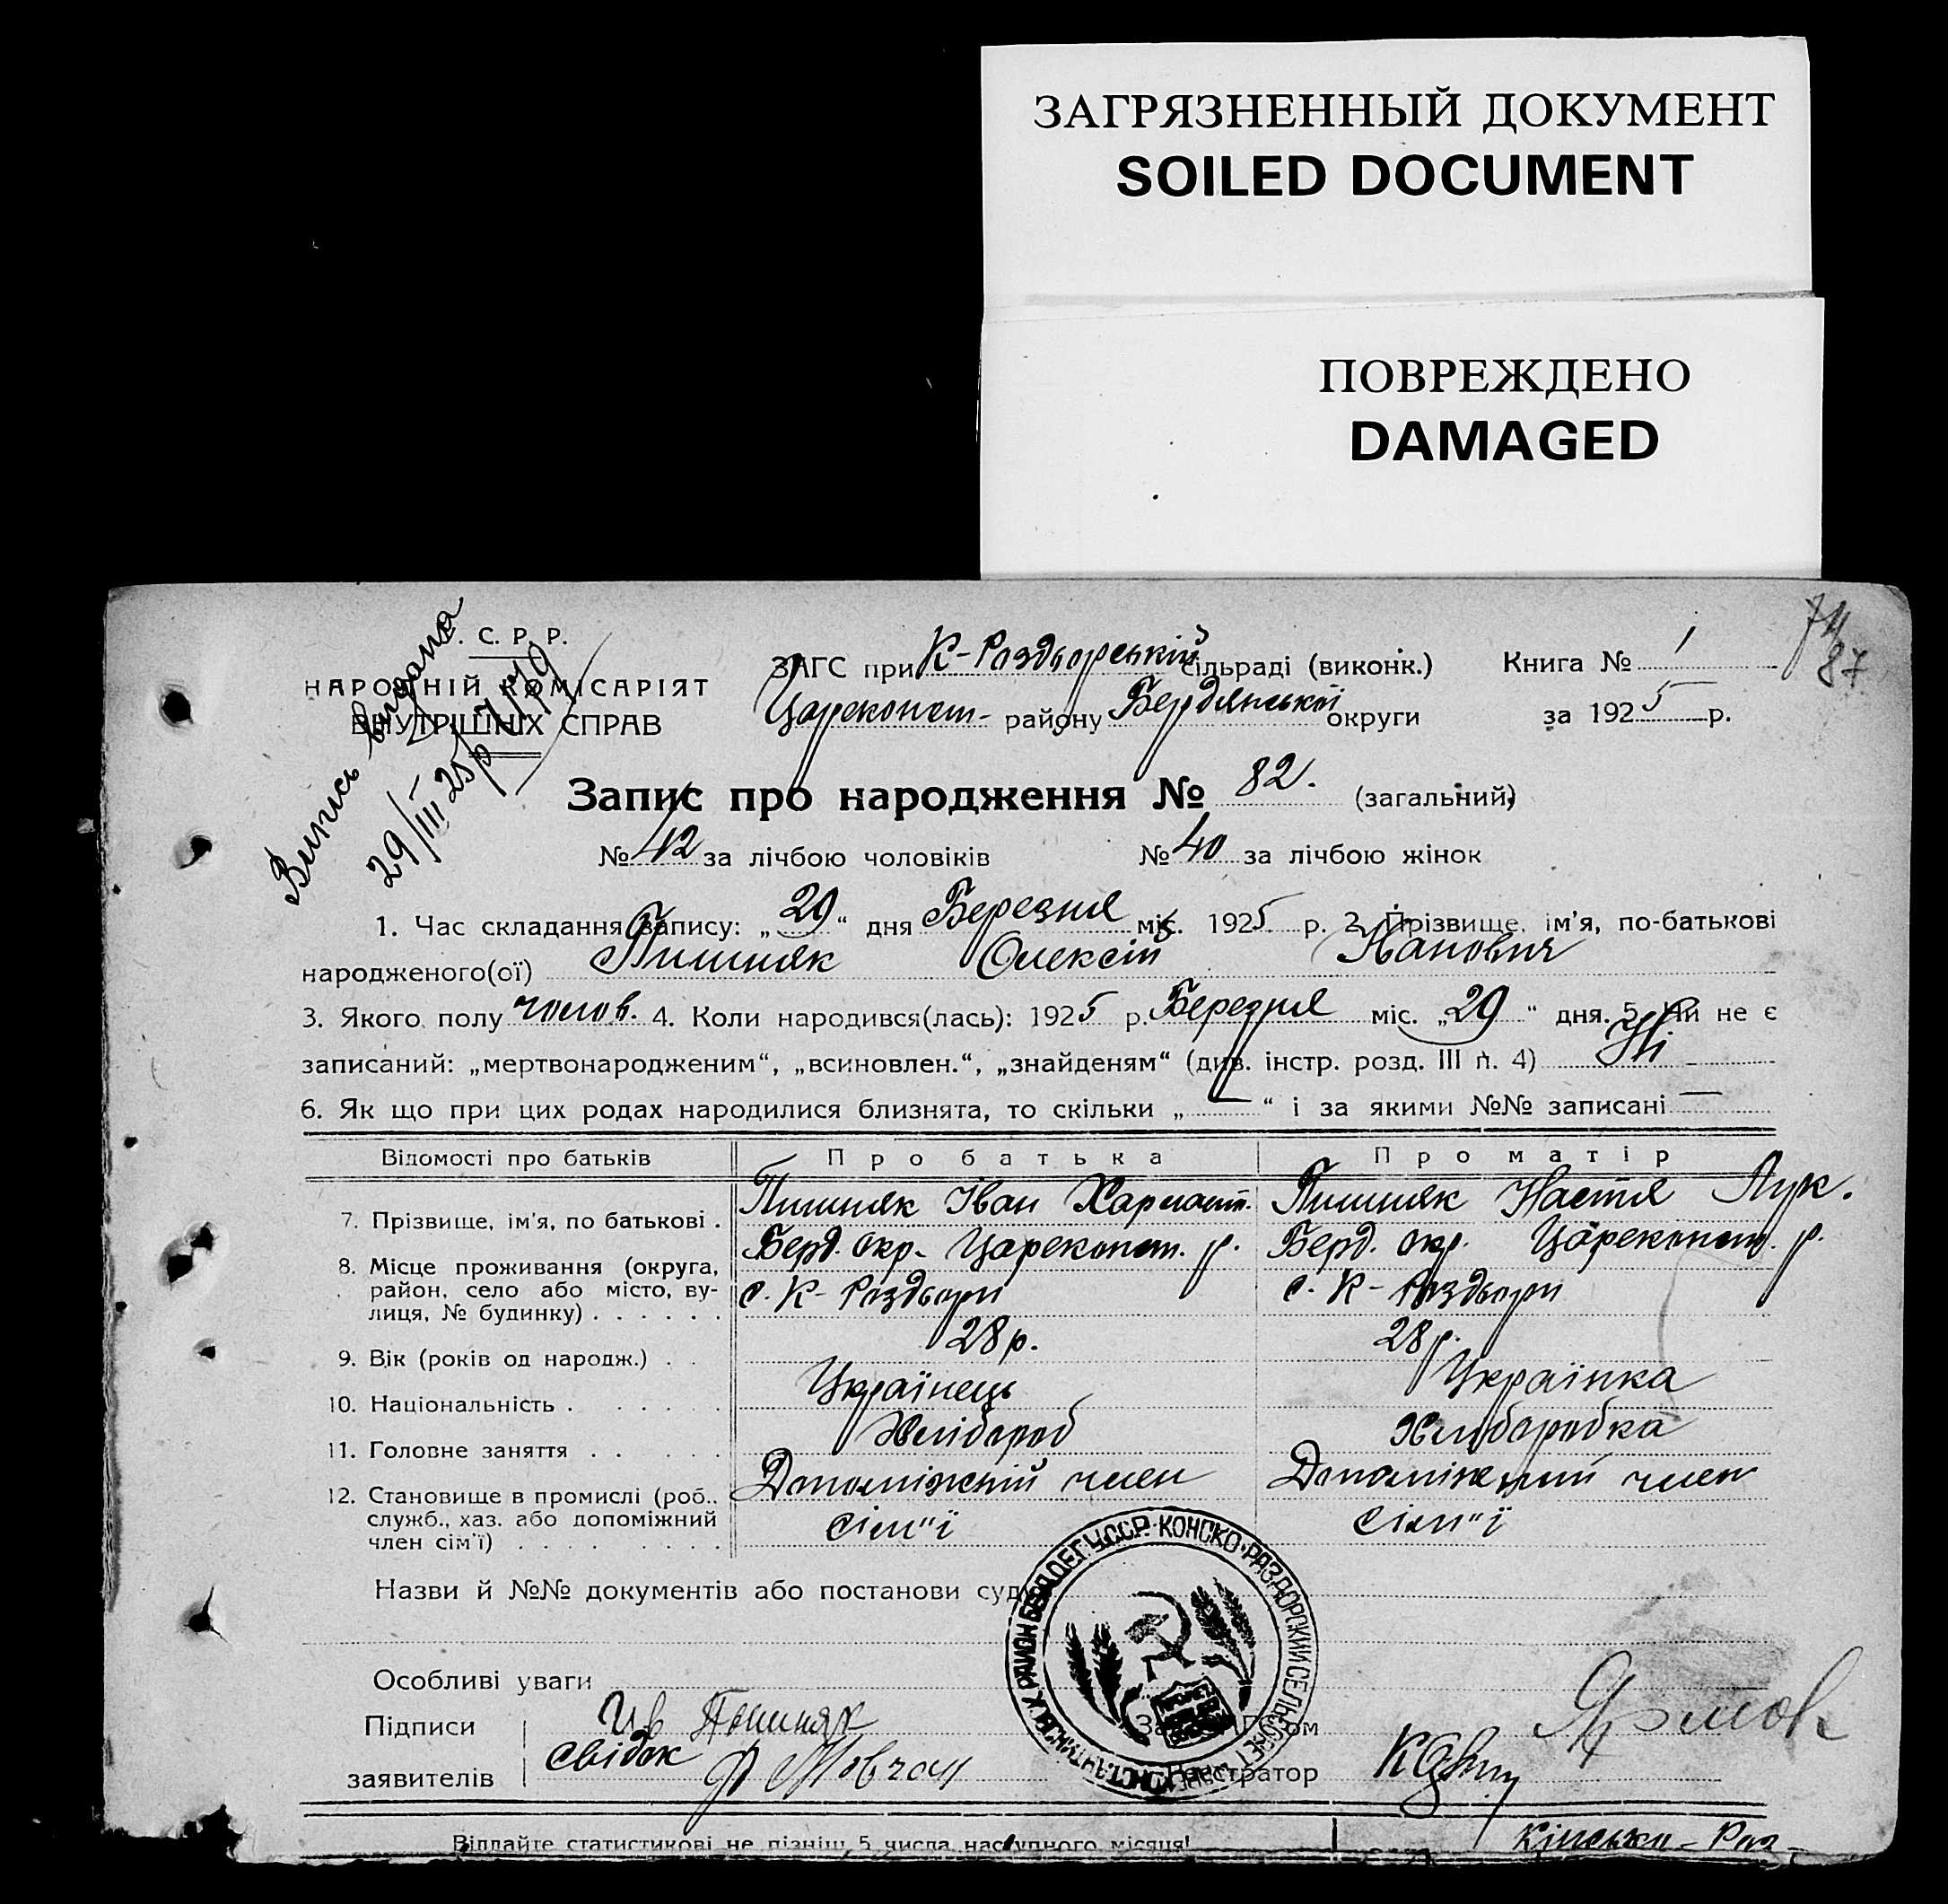 ЗАГРЯЗНЕННЫЙ ДОКУМЕНТ
SOILED DOCUMENT
ПОВРЕЖДЕНО
DAMAGED
74
87
. С. Р. Р.
НАРОДНІЙ КОМІСАРІЯТ
ВНУТРІШНІХ СПРАВ
Випись видана
29/III 25р
ЗАГС при К-Роздорській сільраді (виконк.) Книга № 1
Цареконст- району Бердянської округи за 1925 р.
Запис про народження № 82. (загальний)
№ 42 за лічбою чоловіків № 40 за лічбою жінок
1. Час складання запису: „29“ дня Березня міс. 1925 р. 2. Прізвище, ім'я, по-батькові
народженого(ої) Пишняк Олексій Іванович
3. Якого полу чолов. 4. Коли народився(лась): 1925 р. Березня міс. „29“ дня. 5. Чи не є
записаний: „мертвонародженим“, „всиновлен.“, „знайденям“ (див. інстр. розд. III п. 4) Ні
6. Як що при цих родах народилися близнята, то скільки „—“ і за якими №№ записані —
Відомості про батьків Про батька Про матір
7. Прізвище, ім'я, по батькові . Пишняк Іван Харламп. Пишняк Настя Лук.
8. Місце проживання (округа, район, село або місто, вулиця, № будинку) . . . . . . Берд. окр. Цареконст. р. Берд. окр. Цареконст. р.
с. К-Роздори с. К-Роздори
9. Вік (років од народж.) . . 28 р. 28 р.
10. Національність . . . . . . Українець Українка
11. Головне заняття . . . . . Хлібороб Хліборобка
12. Становище в промислі (роб., служб., хаз. або допоміжний член сім'ї) . . . . . . . . Допоміжній член Допоміжний член
сім"ї сім"ї
Назви й №№ документів або постанови суду
Особливі уваги
Підписи Ив Пишняк
заявителів свідок Ф Мовчан
Реєстратор
У.С.С.Р. КОНСКО-РАЗДОРСКИЙ СЕЛЬСОВЕТ
Віддайте статистикові не пізніш 5 числа наступного місяця!
Кінсько-Роз-